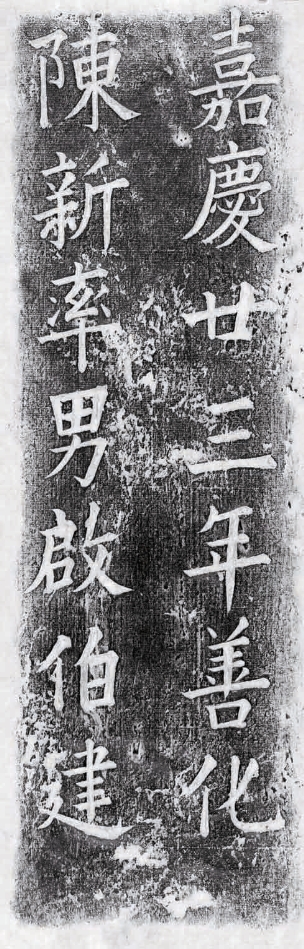 嘉慶廿三年善化
陳新率男啟伯建